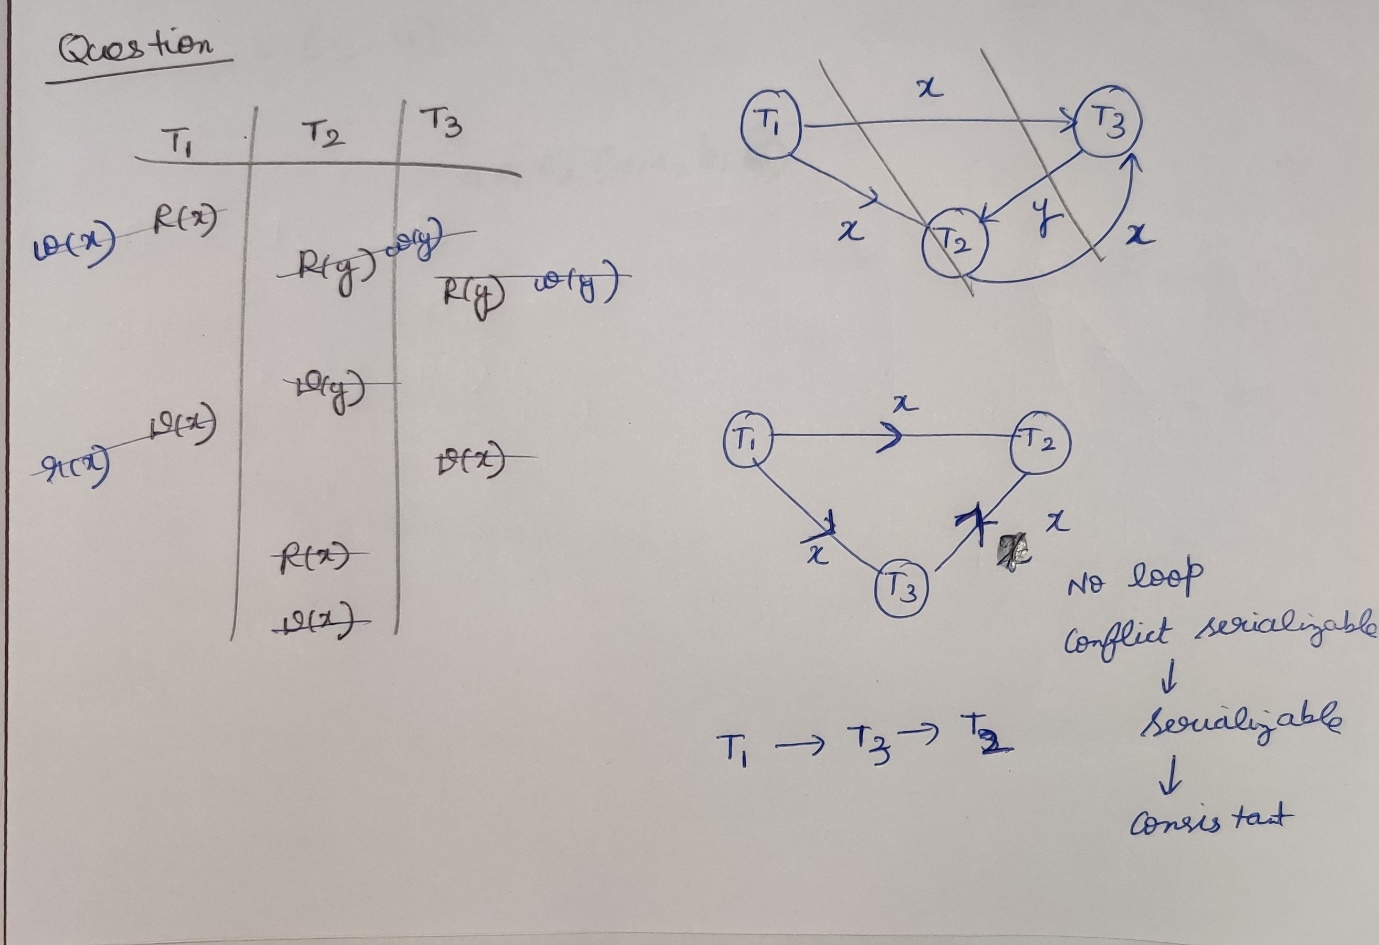 Question
T1 T2 T3
w(x) R(x)
R(y) w(y)
R(y) w(y)
w(y)
w(x)
r(x)
w(x)
R(x)
w(x)
T1 x T3
x T2 y x
T1 x T2
x x
T3
No loop
Conflict serializable
↓
Serializable
↓
Consistant
T1 → T3 → T2